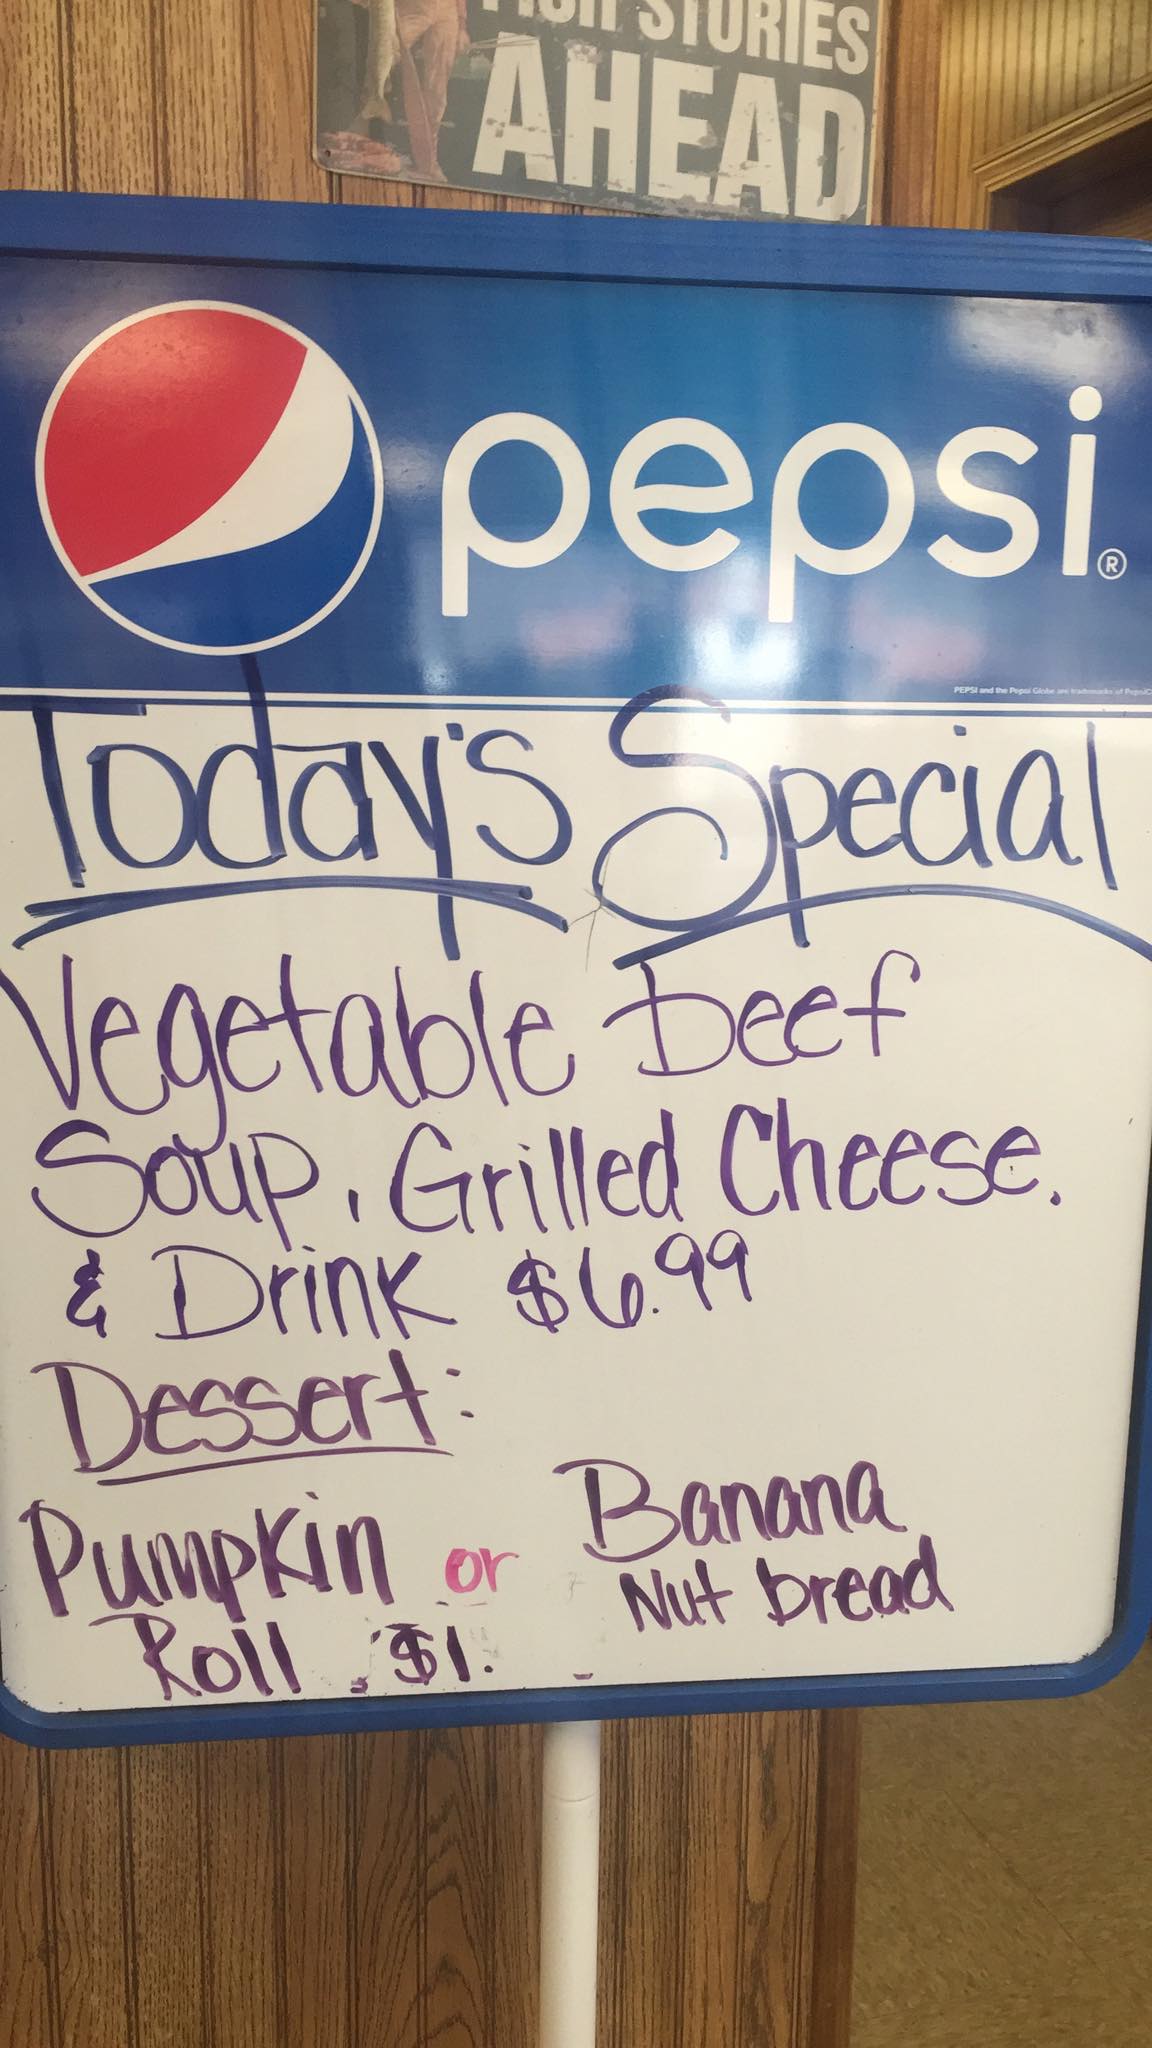 STORIES
AHEAD
pepsi®
PEPSI and the Pepsi Globe are trademarks of PepsiC
Today's Special
Vegetable Beef
Soup, Grilled Cheese.
& Drink $6.99
Dessert:
Pumpkin or Banana
Roll $1. Nut bread